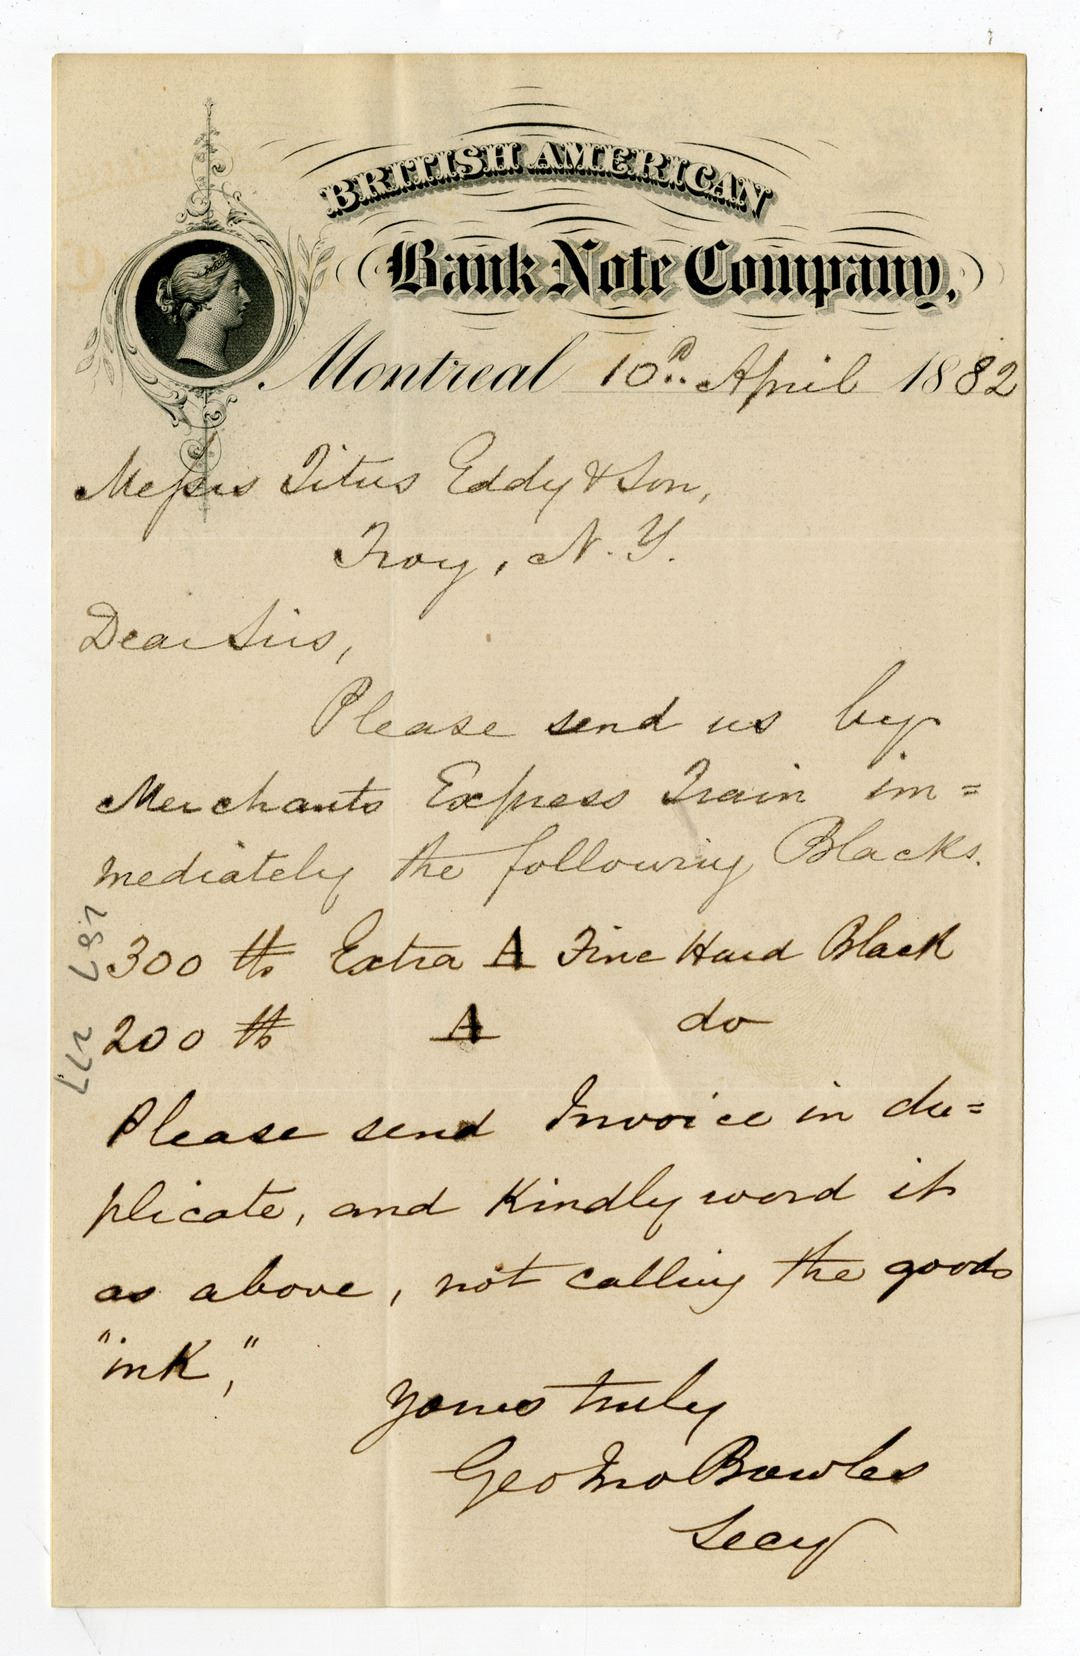 BRITISH AMERICAN
Bank Note Company,
Montreal 10th April 1882
Messrs Titus Eddy & Son,
Troy, N.Y.
Dear Sirs,
Please send us by
Merchants Express Train im=
mediately the following Blacks.
300 lb Extra A Fine Hard Black
200 lb A do
Please send Invoice in du=
plicate, and Kindly word it
as above, not calling the goods
"ink,"
Yours truly
Geo Jno Bowles
Secy